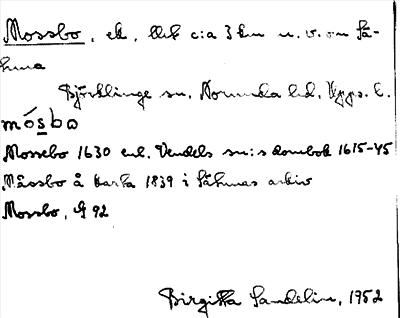 Mossbo, ek, blek c:a 3 km n. v. om Så-
kma
Björklinge sn. Norunda hd. Upps. l.
mósbω
Mossebo 1630 enl. Vendels sn:s dombok 1615-45
Måssbo å karta 1839 i Såkmas arkiv
Mossbo, G 92
Birgitta Sandelin, 1952